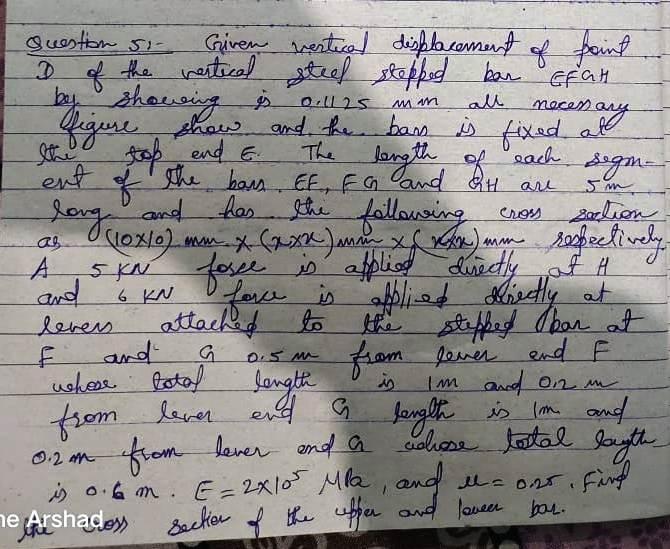 Question 5:- Given vertical displacement of point
D of the vertical steel stepped bar EFGH
by showing is 0.1125 mm all necessary
figure show and the bars is fixed at
the top end E. The length of each segm-
ent of the bars EF, FG and GH are 5m
long and has the following cross section
as (10x10) mm x (x x x) mm x (x x x) mm respectively.
A 5 KN force is applied directly at H
and 6 KN force is applied directly at
levers attached to the stepped bar at
F and G 0.5 m from lever end F
whose total length is 1m and 0.2 m
from lever end G length is 1m and
0.2 m from lever end G whose total length
is 0.6 m. E = 2x10⁵ MPa, and u = 0.25. Find
the cross section of the upper and lower bar.
ne Arshad